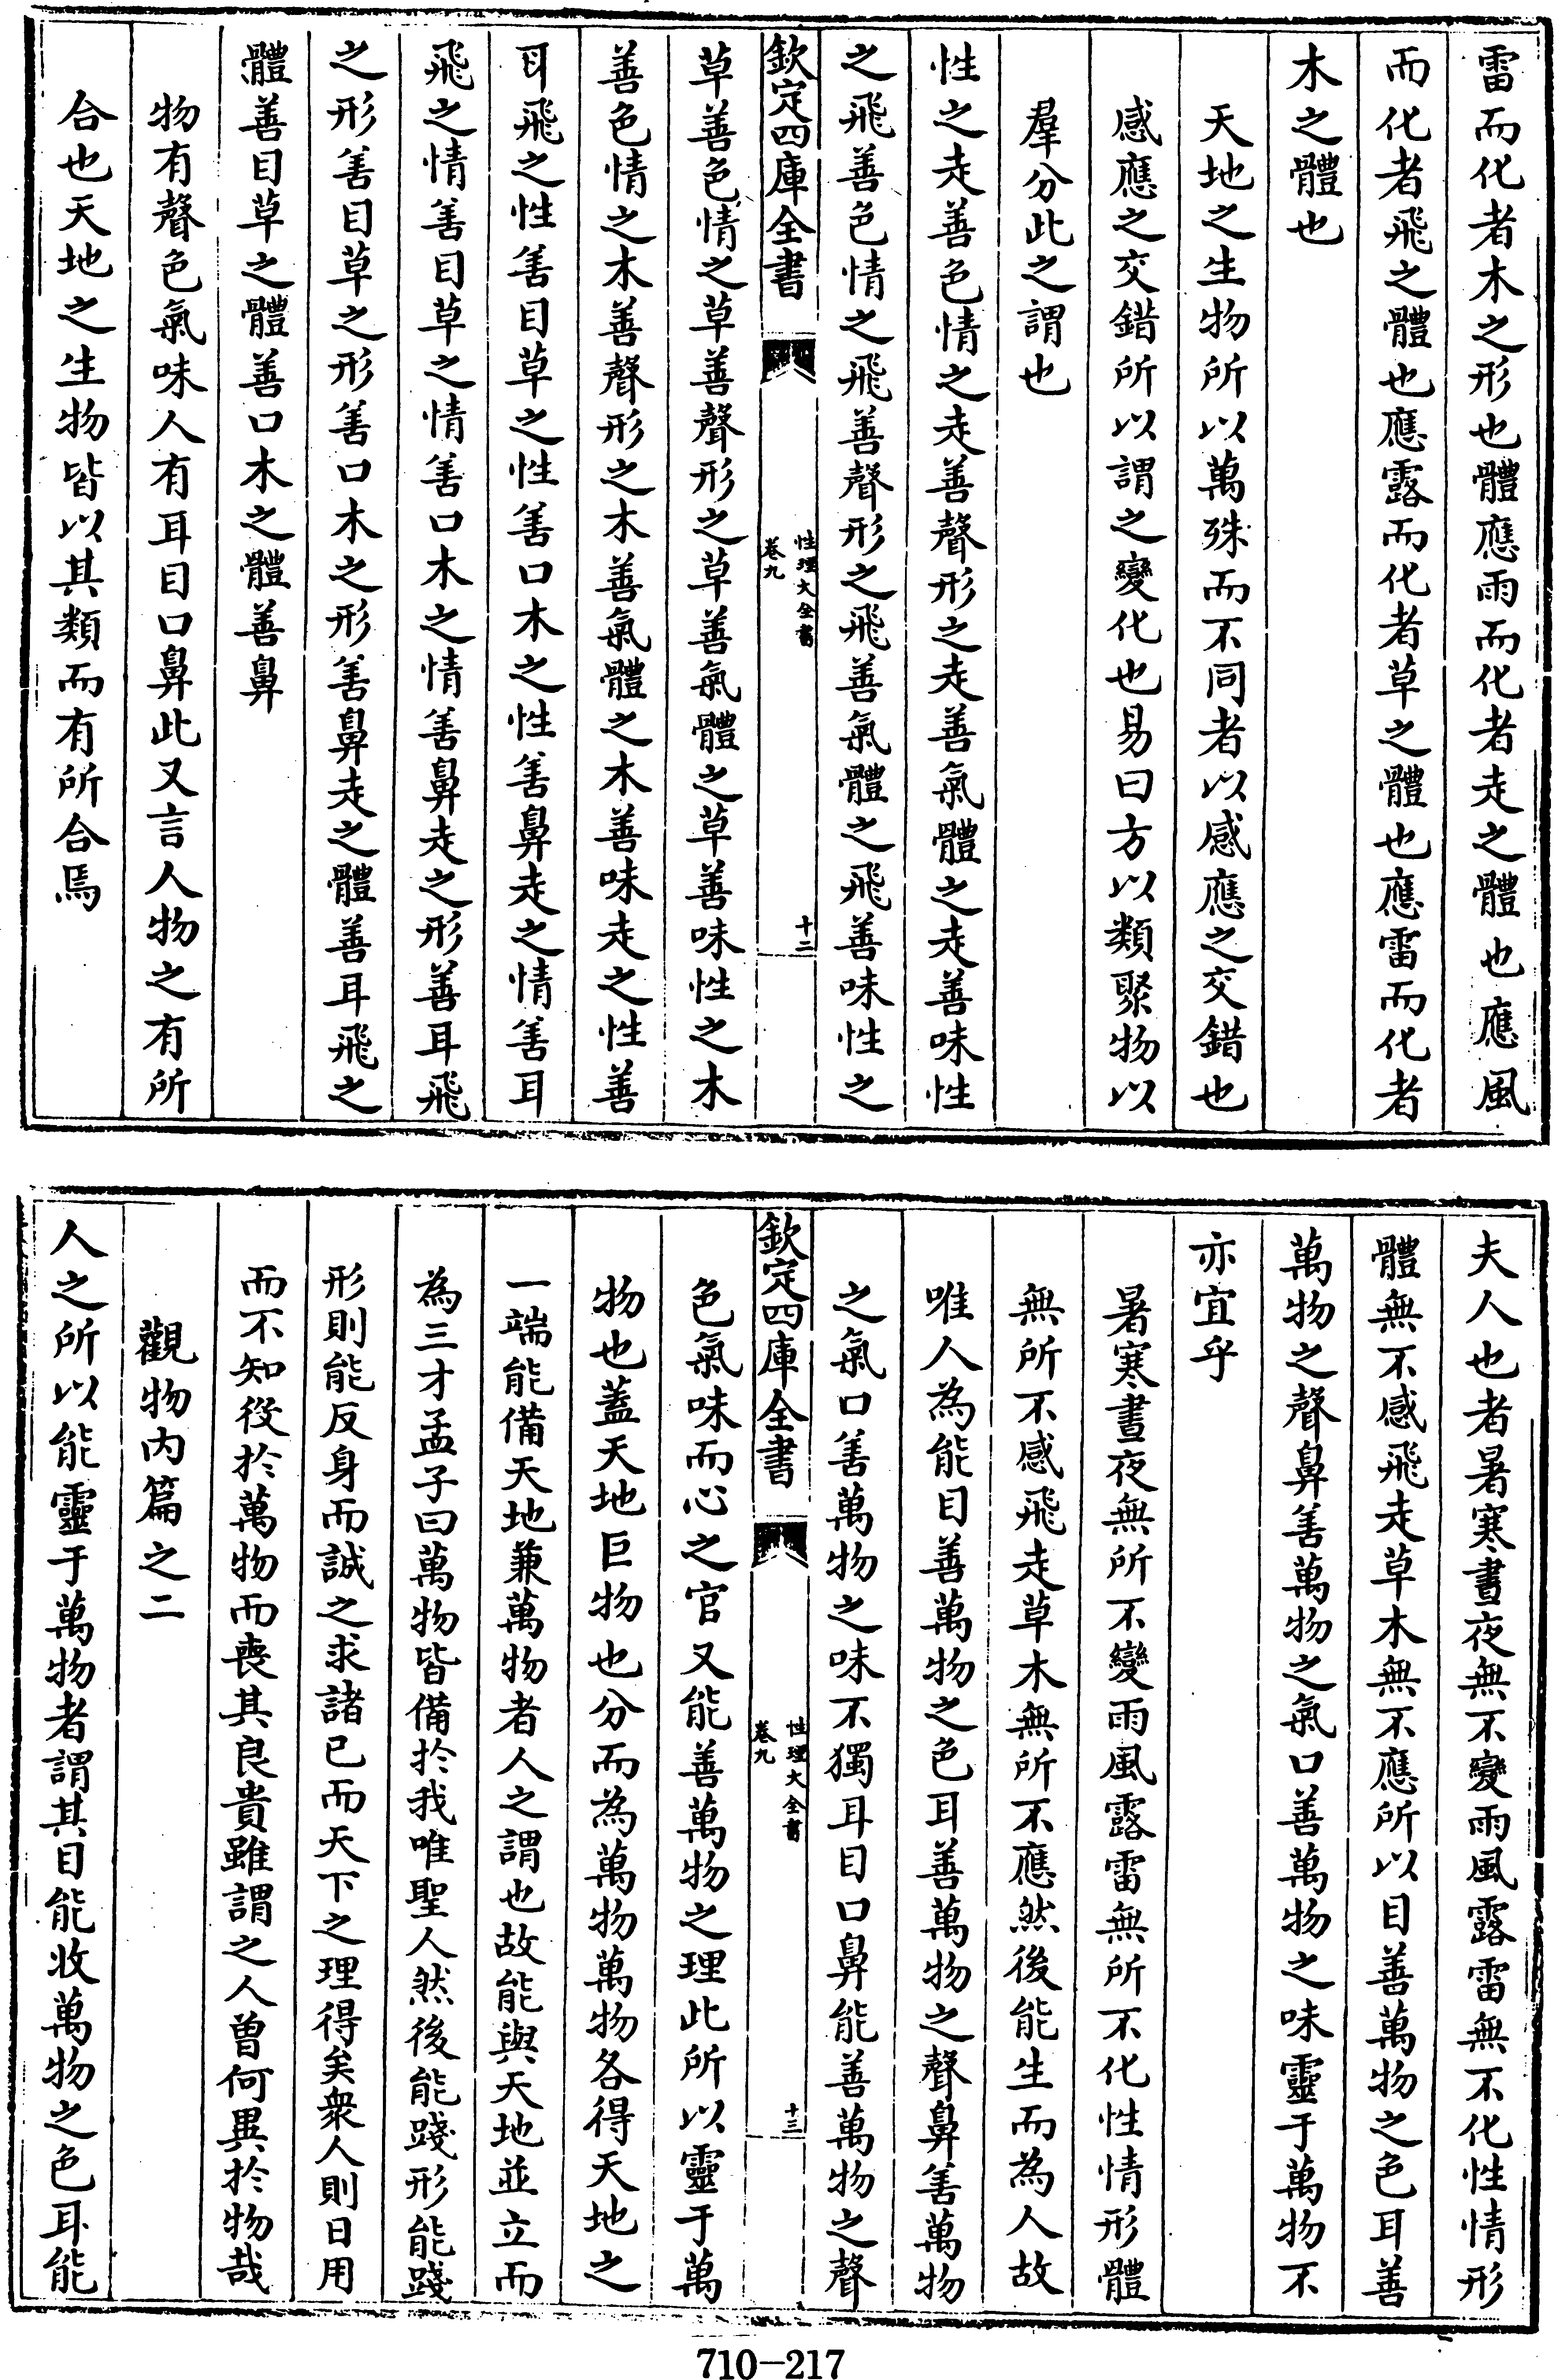 雷而化者木之形也體應雨而化者走之體也應風
而化者飛之體也應露而化者草之體也應雷而化者
木之體也
天地之生物所以萬殊而不同者以感應之交錯也
感應之交錯所以謂之變化也易曰方以類聚物以
羣分此之謂也
性之走善色情之走善聲形之走善氣體之走善味性
之飛善色情之飛善聲形之飛善氣體之飛善味性之
欽定四庫全書
性理大全書
卷九
十二
草善色情之草善聲形之草善氣體之草善味性之木
善色情之木善聲形之木善氣體之木善味走之性善
耳飛之性善目草之性善口木之性善鼻走之情善耳
飛之情善目草之情善口木之情善鼻走之形善耳飛
之形善目草之形善口木之形善鼻走之體善耳飛之
體善目草之體善口木之體善鼻
物有聲色氣味人有耳目口鼻此又言人物之有所
合也天地之生物皆以其類而有所合焉
夫人也者暑寒晝夜無不變雨風露雷無不化性情形
體無不感飛走草木無不應所以目善萬物之色耳善
萬物之聲鼻善萬物之氣口善萬物之味靈于萬物不
亦宜乎
暑寒晝夜無所不變雨風露雷無所不化性情形體
無所不感飛走草木無所不應然後能生而為人故
唯人為能目善萬物之色耳善萬物之聲鼻善萬物
之氣口善萬物之味不獨耳目口鼻能善萬物之聲
欽定四庫全書
性理大全書
卷九
十三
色氣味而心之官又能善萬物之理此所以靈于萬
物也蓋天地巨物也分而為萬物萬物各得天地之
一端能備天地兼萬物者人之謂也故能與天地並立而
為三才孟子曰萬物皆備於我唯聖人然後能踐形能踐
形則能反身而誠之求諸已而天下之理得矣衆人則日用
而不知役於萬物而喪其良貴雖謂之人曾何異於物哉
觀物內篇之二
人之所以能靈于萬物者謂其目能收萬物之色耳能
710-217